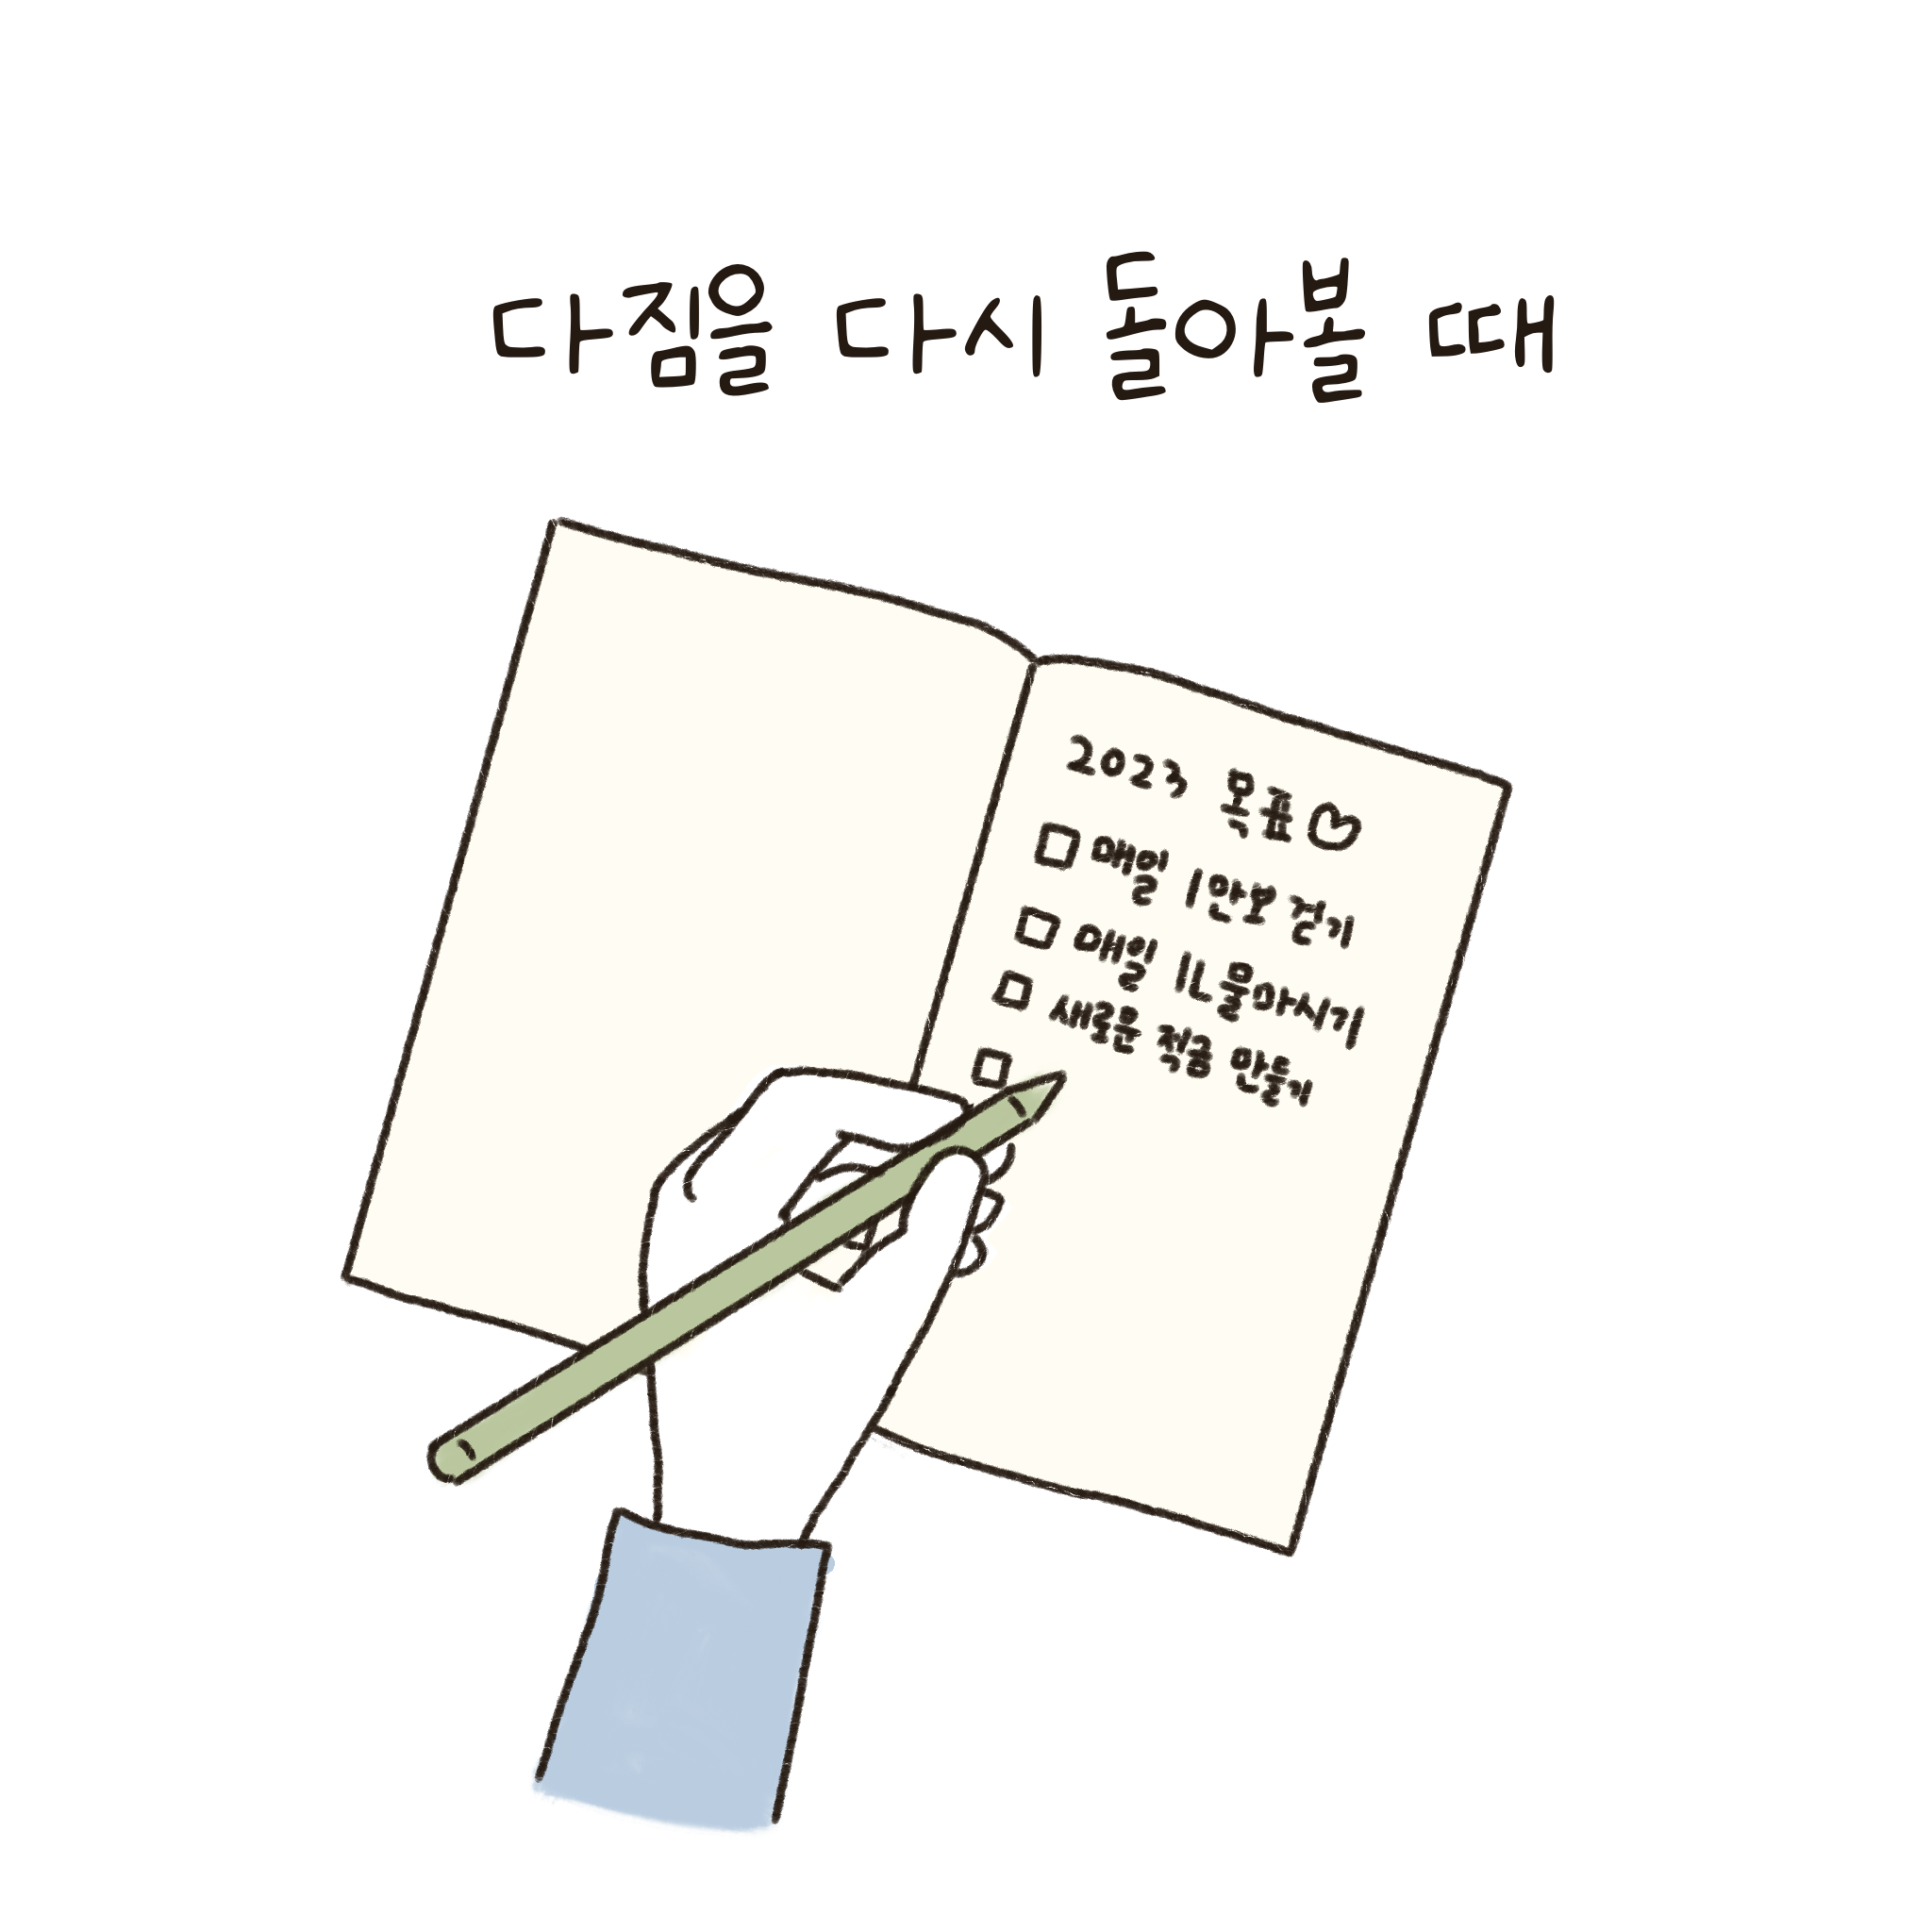 다짐을 다시 돌아볼 때
2023 목표♡
□ 매일 1만보 걷기
□ 매일 1L 물마시기
□ 새로운 적금 만들기
□